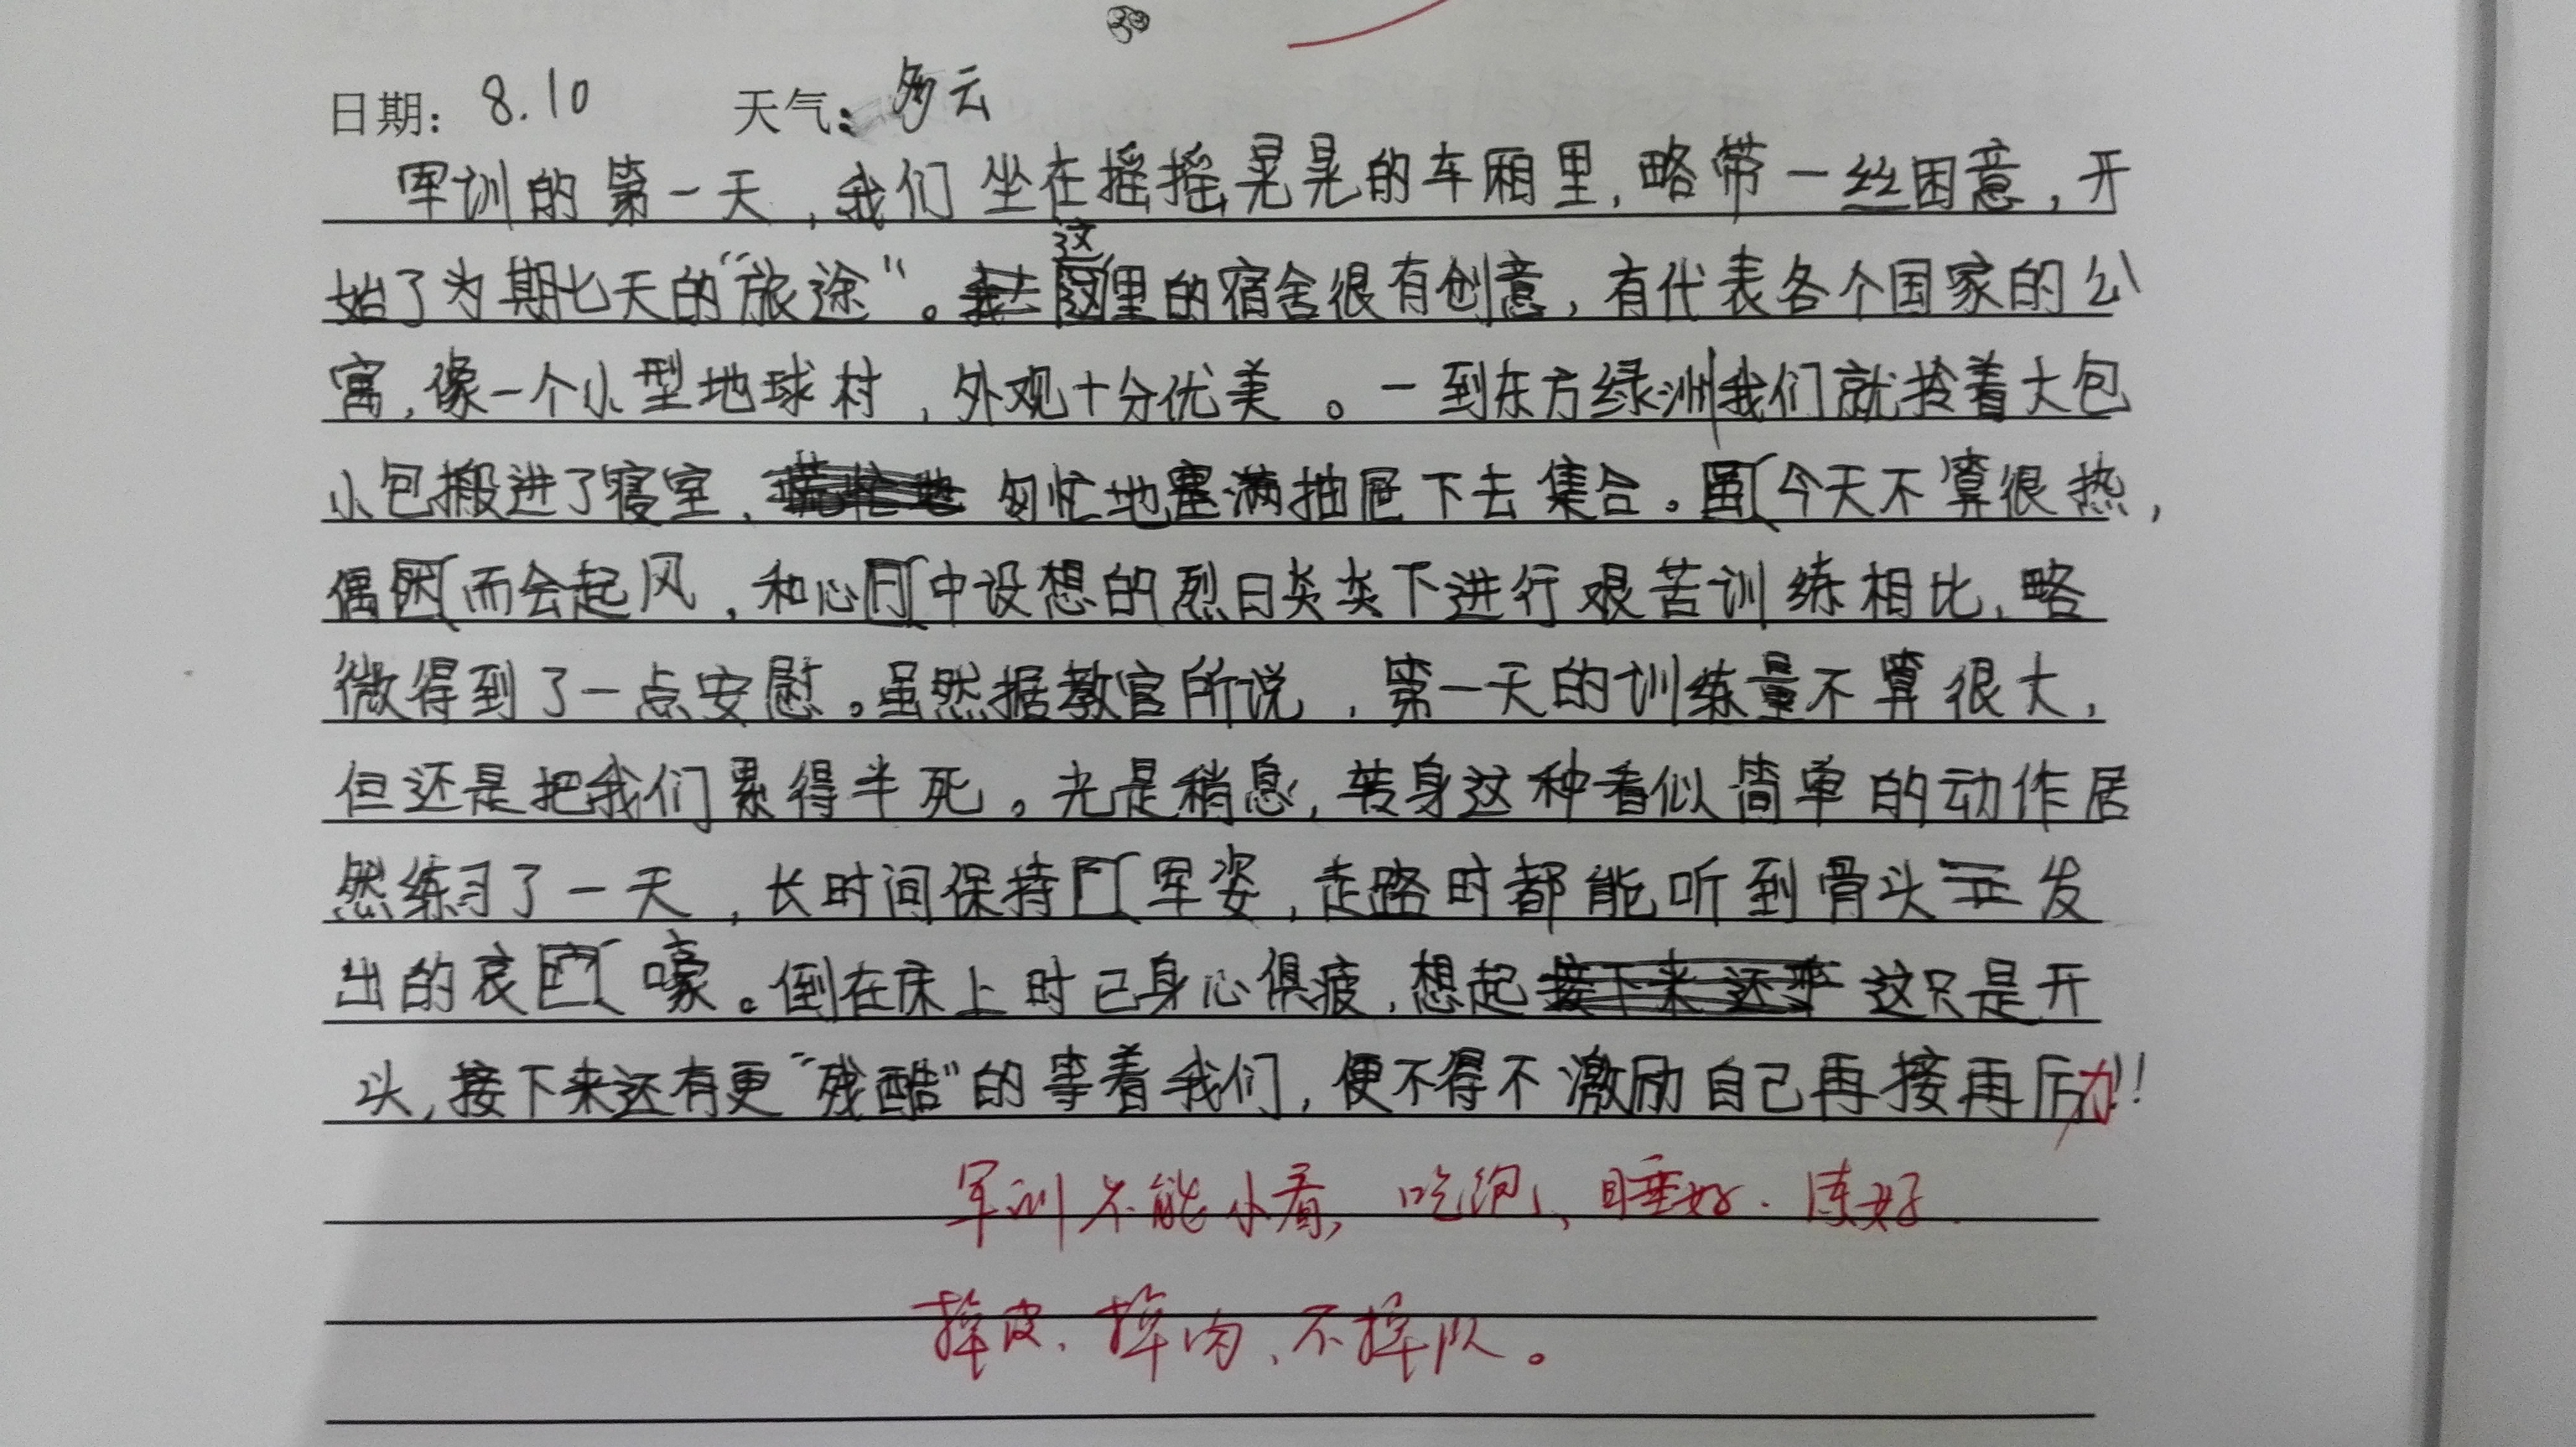 39
日期：8.10 天气：多云
军训的第一天，我们坐在摇摇晃晃的车厢里，略带一丝困意，开
始了为期七天的“旅途”。这里的宿舍很有创意，有代表各个国家的公
寓，像一个小型地球村，外观十分优美。一到东方绿洲我们就拎着大包
小包搬进了寝室，匆忙地塞满抽屉下去集合。今天不算很热，
偶而会起风，和心中设想的烈日炎炎下进行艰苦训练相比，略
微得到了一点安慰。虽然据教官所说，第一天的训练量不算很大，
但还是把我们累得半死。光是稍息，转身这种看似简单的动作居
然练习了一天，长时间保持军姿，走路时都能听到骨头发
出的哀嚎。倒在床上时已身心俱疲，想起这只是开
头，接下来还有更“残酷”的等着我们，便不得不激励自己再接再厉！
军训不能小看，吃饱、睡好、练好
掉皮、掉肉、不掉队。